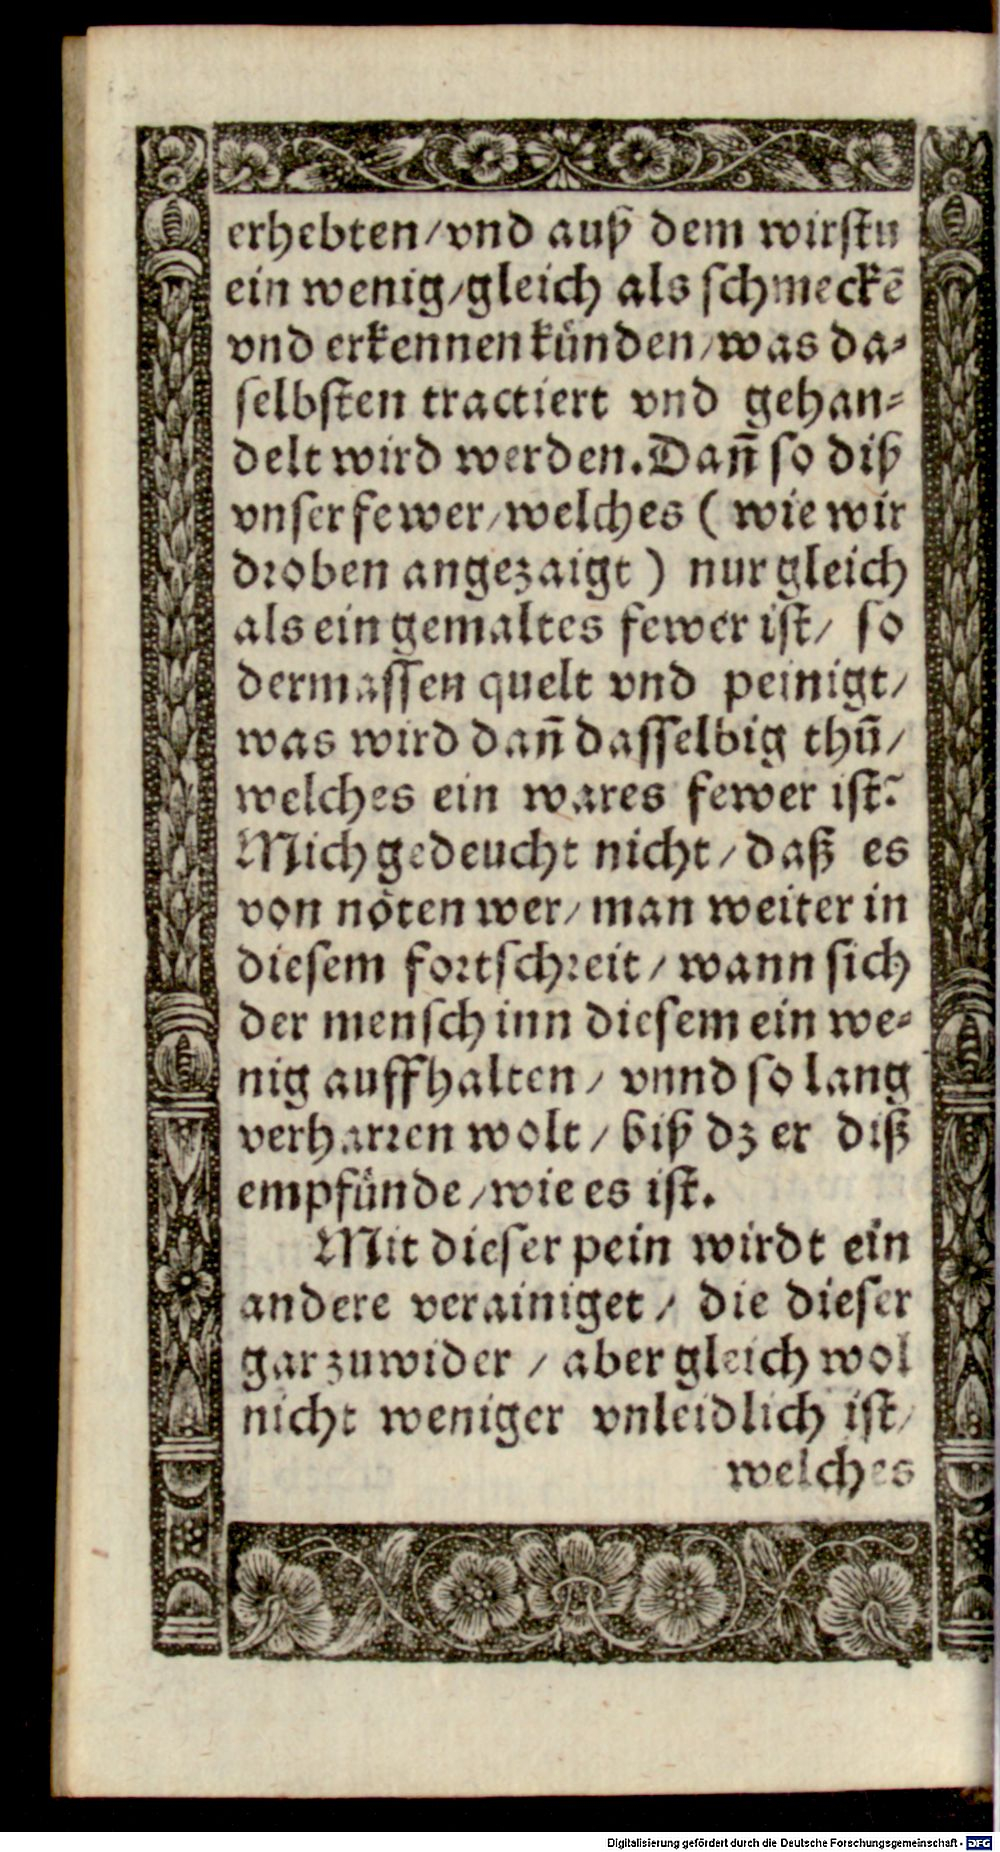 erhebten/vnd auß dem wirstu
ein wenig/gleich als schmeckē
vnd erkennen künden/was da-
selbsten tractiert vnd gehan-
delt wird werden. Dañ so diß
vnser fewer/welches ( wie wir
droben angezaigt ) nur gleich
als ein gemaltes fewer ist/ so
dermassen quelt vnd peinigt/
was wird dañ dasselbig thū/
welches ein wares fewer ist?
Mich gedeucht nicht/daß es
von nöten wer/man weiter in
diesem fortschreit/wann sich
der mensch inn diesem ein we-
nig auffhalten/ vnnd so lang
verharren wolt/biß dz er diß
empfünde/wie es ist.
Mit dieser pein wirdt ein
andere verainiget/ die dieser
gar zuwider / aber gleich wol
nicht weniger vnleidlich ist/
welches
Digitalisierung gefördert durch die Deutsche Forschungsgemeinschaft - DFG